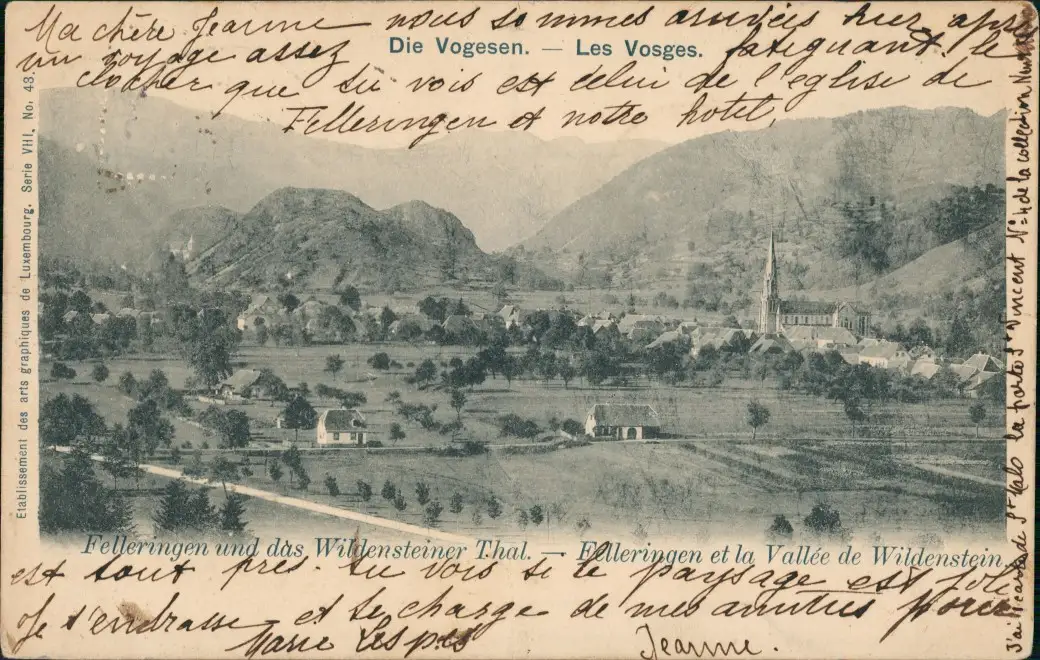 Ma chère Jeanne nous sommes arrivés hier après
un voyage assez fatiguant. le
Die Vogesen. — Les Vosges.
clocher que tu vois est celui de l'église de
Felleringen et notre hotel,
Etablissement des arts graphiques de Luxembourg. Serie VIII. No. 43.
Felleringen und das Wildensteiner Thal. — Felleringen et la Vallée de Wildenstein.
est tout près. tu vois si le paysage est joli
Je t'embrasse et te charge de mes amitiés pour
Marie
Jeanne.
J'ai 1 carte de St Malo la porte St Vincent N°4 de la collection